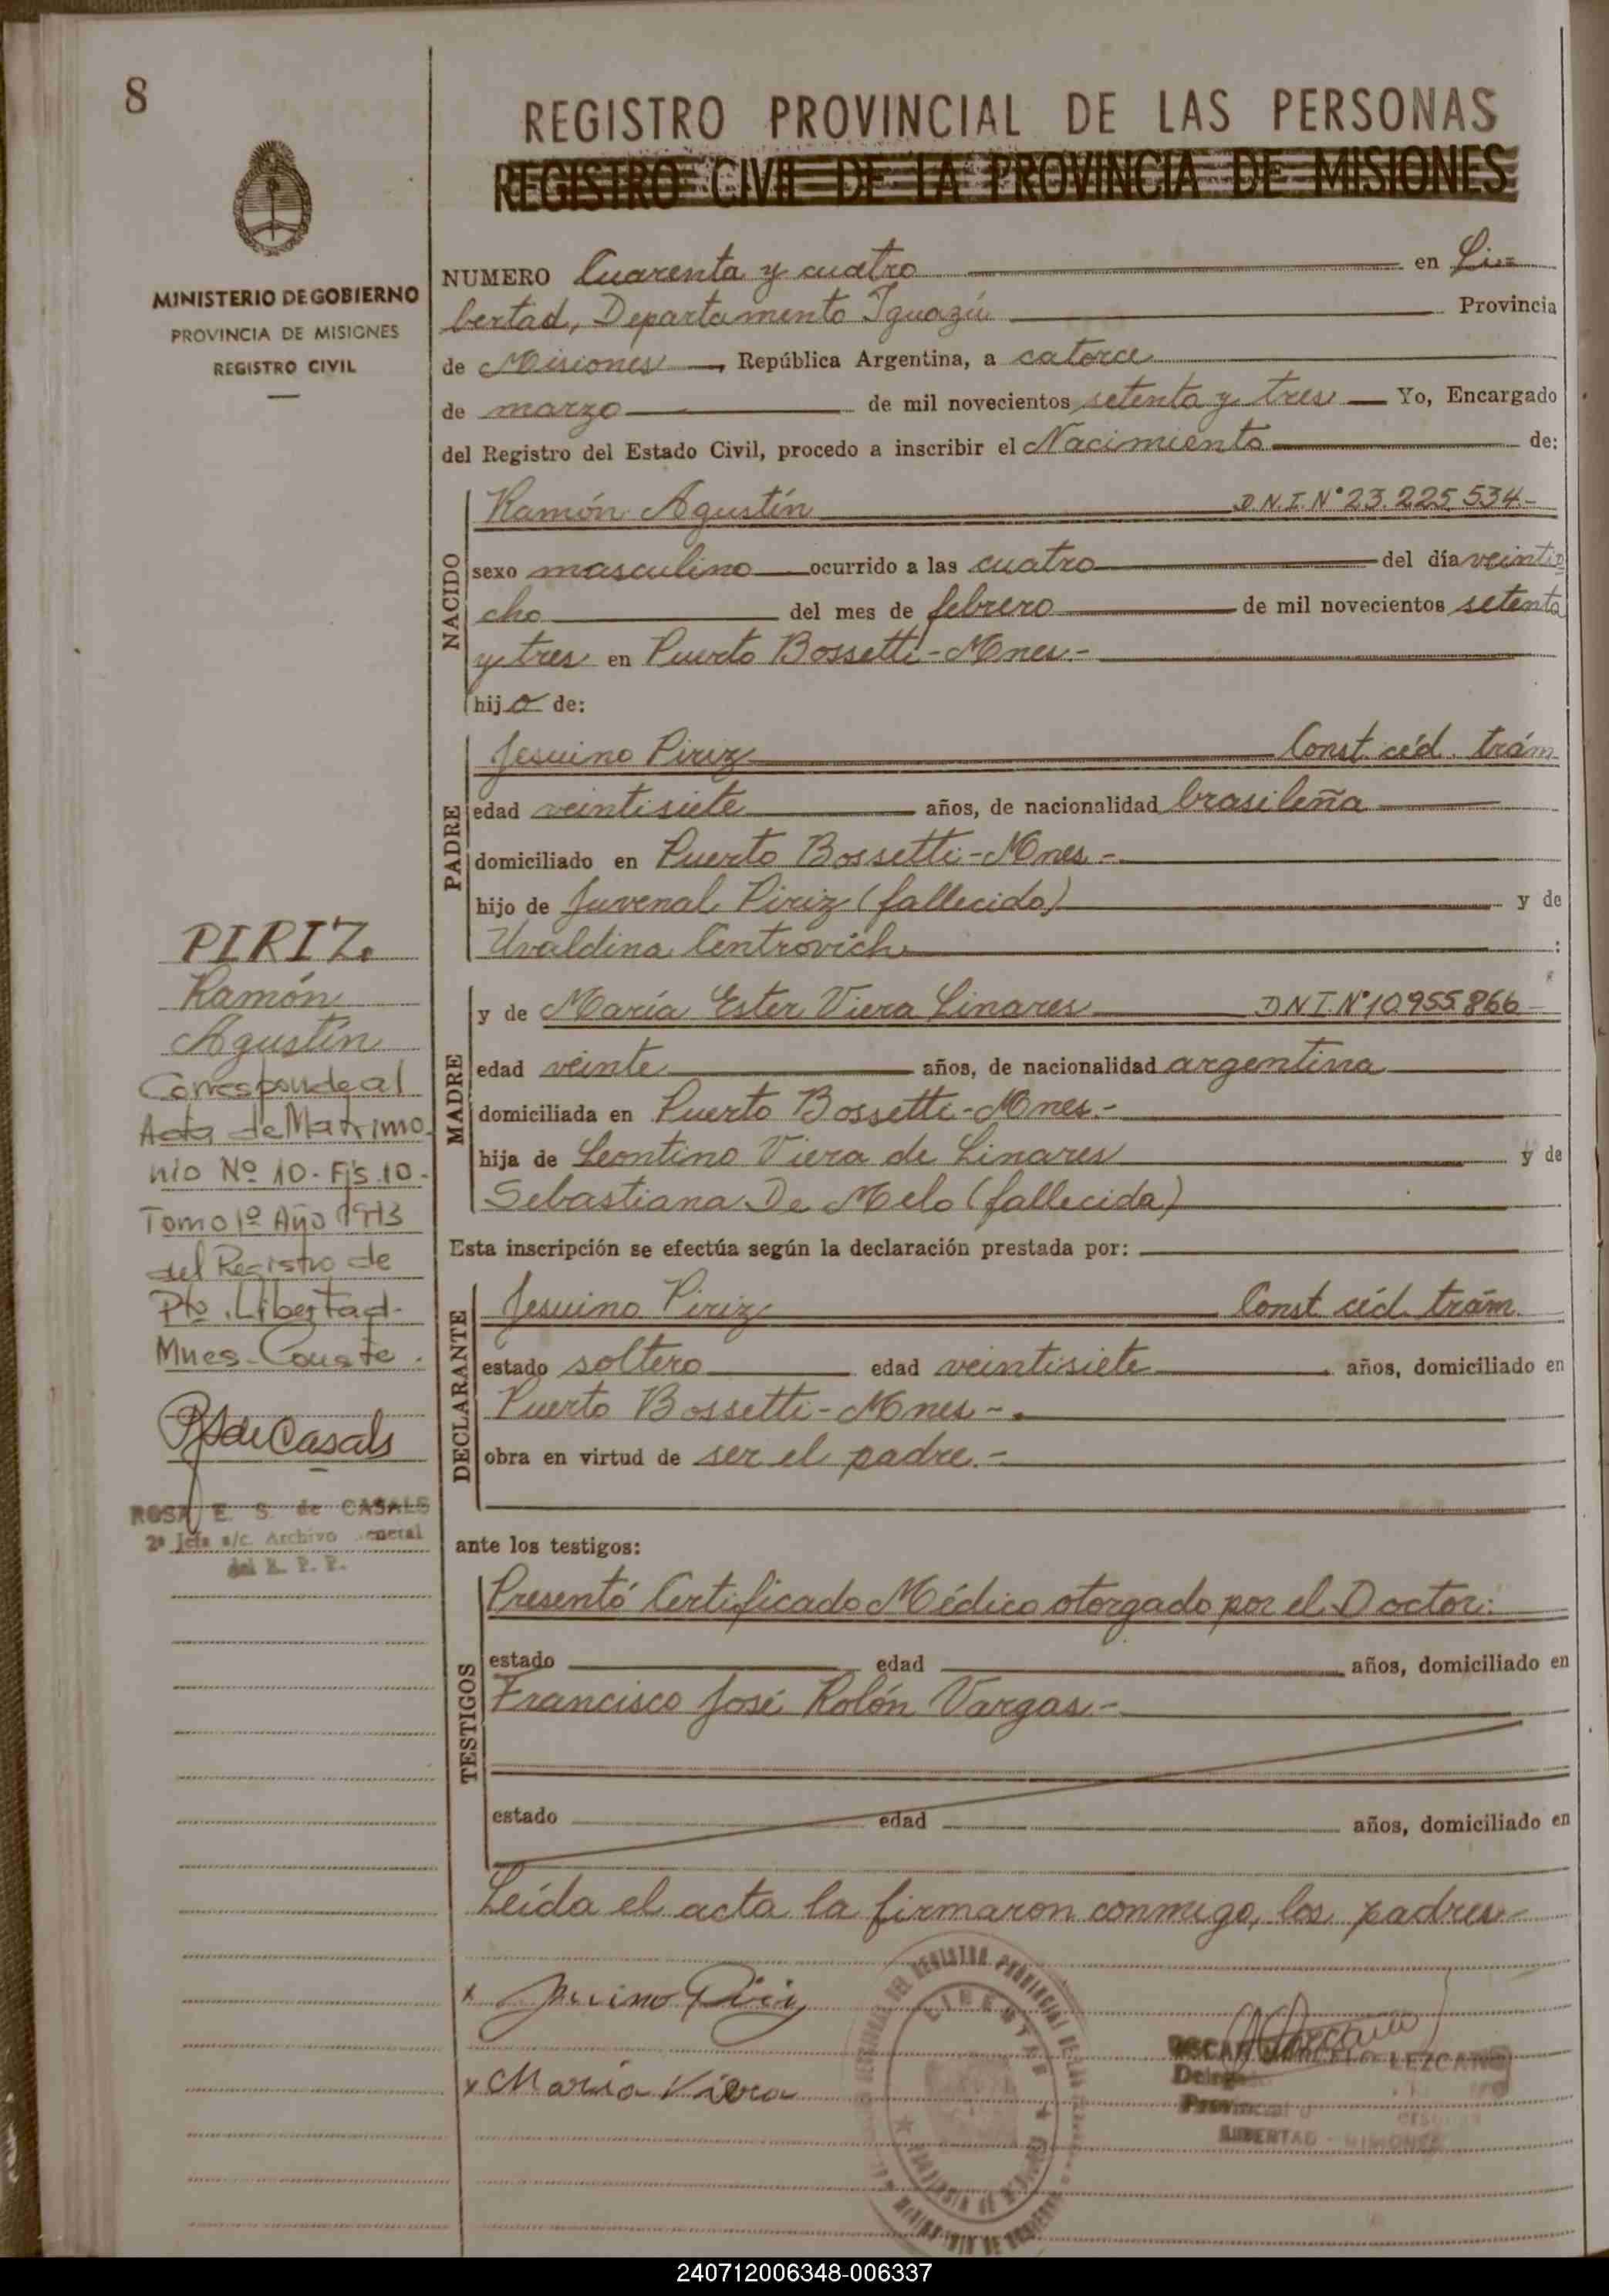 8
REGISTRO PROVINCIAL DE LAS PERSONAS
REGISTRO CIVIL DE LA PROVINCIA DE MISIONES
MINISTERIO DE GOBIERNO
PROVINCIA DE MISIONES
REGISTRO CIVIL
NUMERO Cuarenta y cuatro en Li=
bertad, Departamento Iguazú Provincia
de Misiones, República Argentina, a catorce
de marzo de mil novecientos setenta y tres Yo, Encargado
del Registro del Estado Civil, procedo a inscribir el Nacimiento de:
NACIDO
Ramón Agustín D.N.I. Nº 23.225.534.-
sexo masculino ocurrido a las cuatro del día veintio
cho del mes de febrero de mil novecientos setenta
y tres en Puerto Bossetti-Mnes.-
hijo de:
PADRE
Jesuino Piriz Const. céd. trám
edad veintisiete años, de nacionalidad brasileña
domiciliado en Puerto Bossetti-Mnes.-
hijo de Juvenal Piriz (fallecido) y de
Uvaldina Centrovich :
MADRE
y de María Ester Viera Linares D.N.I. Nº 10.955.866
edad veinte años, de nacionalidad argentina
domiciliada en Puerto Bossetti-Mnes.-
hija de Leontino Viera de Linares y de
Sebastiana De Melo (fallecida)
Esta inscripción se efectúa según la declaración prestada por:
DECLARANTE
Jesuino Piriz Const céd. trám.
estado soltero edad veintisiete años, domiciliado en
Puerto Bossetti-Mnes-.
obra en virtud de ser el padre.-
ante los testigos:
TESTIGOS
Presentó Certificado Médico otorgado por el Doctor:
estado edad años, domiciliado en
Francisco José Rolón Vargas.-
estado edad años, domiciliado en
Leída el acta la firmaron conmigo, los padres-
x Jesuino Piriz
x Maria Viera
PIRIZ.
Ramón
Agustín
Corresponde al
Acta de Matrimo
nio Nº 10-Fjs.10-
Tomo 1º Año 1973
del Registro de
Pto. Libertad-
Mnes-Conste.
RSdeCasals
ROSA E. S. de CASALS
2ª Jefa a/c. Archivo General
del R. P. P.
OSCAR MARCELO LEZCANO
LIBERTAD - MISIONES
240712006348-006337